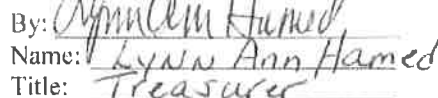 By: Lynn Ann Hamed
Name: Lynn Ann Hamed
Title: Treasurer